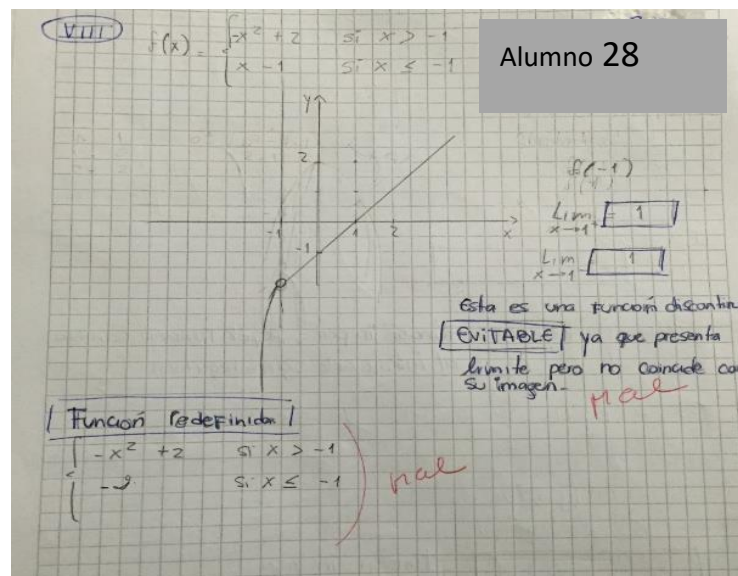 VIII)
f(x) = { -x² + 2 si x > -1
x - 1 si x ≤ -1
Alumno 28
y
2
-1 1 2 x
-1
f(-1)
Lim = 1
x→1⁺
Lim 1
x→1⁻
Esta es una función discontin
EVITABLE ya que presenta
límite pero no coincide co
su imagen.
Mal
Función redefinida
{ -x² + 2 si x > -1
-2 si x ≤ -1
Mal